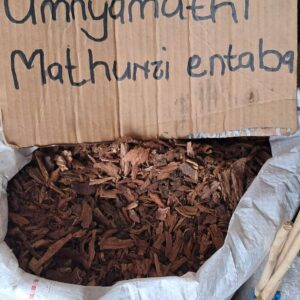 Umnyamathi
Mathunzi entaba